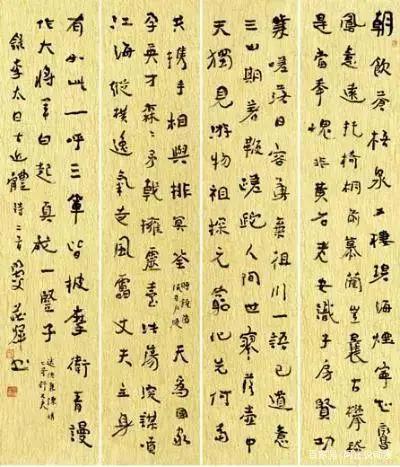 朝飲蒼梧泉夕棲碧海煙寧知鸞
鳳意遠托椅桐前慕藺豈曩古攀嵇
是當年愧非黃石老安識子房賢功
業嗟落日容華棄徂川一語已道意
三山期著鞭蹉跎人間世寥落壺中
天獨見游物祖探元窮化先何當
共攜手相與排冥筌 贈饒陽張司戶璲 天為國家
孕英才森森矛戟擁靈臺浩蕩深謀噴
江海縱橫逸氣走風雷丈夫立身
有如此一呼三軍皆披靡衛青謾
作大將軍白起真成一豎子 述德兼陳情上哥舒大夫
錄李太白古近體詩二首 書
百家号